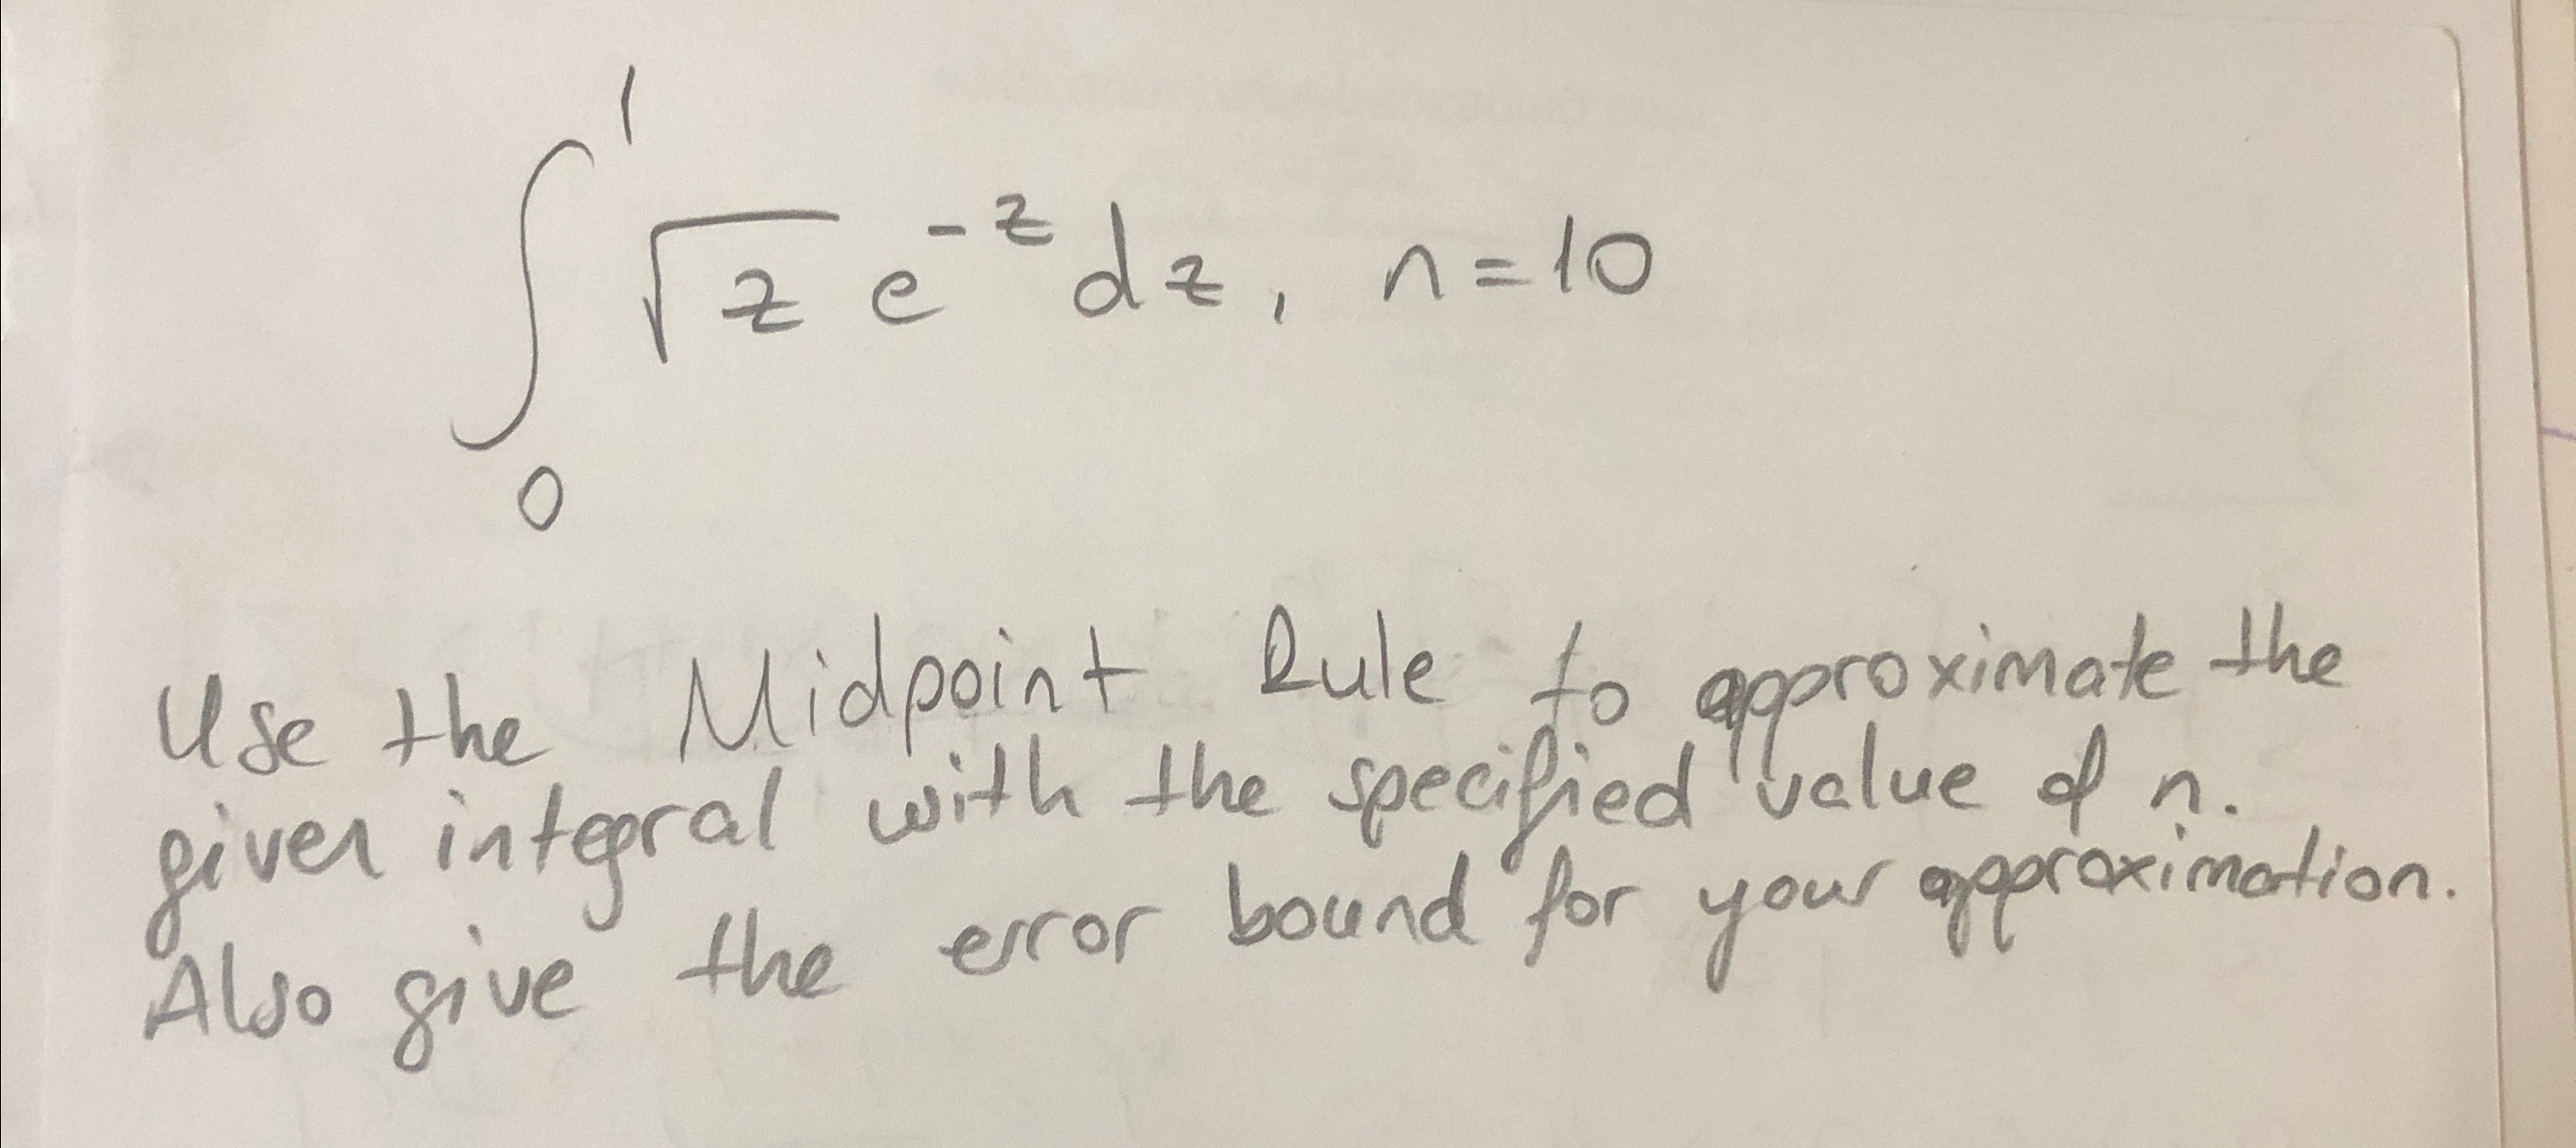 ∫₀¹ √z e^{-z} dz, n=10
Use the Midpoint Rule to approximate the
given integral with the specified value of n.
Also give the error bound for your approximation.